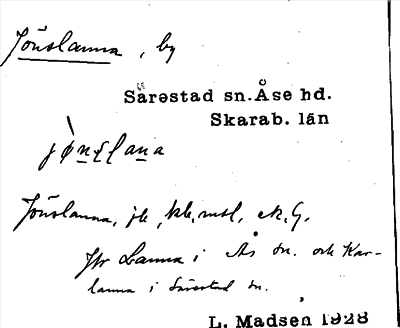 Jönslanna, by
Särestad sn. Åse hd.
Skarab. län
jø̀nslana
Jönslanna, jb, kb, mtl, ek, G.
Jfr Lanna i Ås sn. och Kar-
lanna i Särestad sn.
L. Madsen 1928